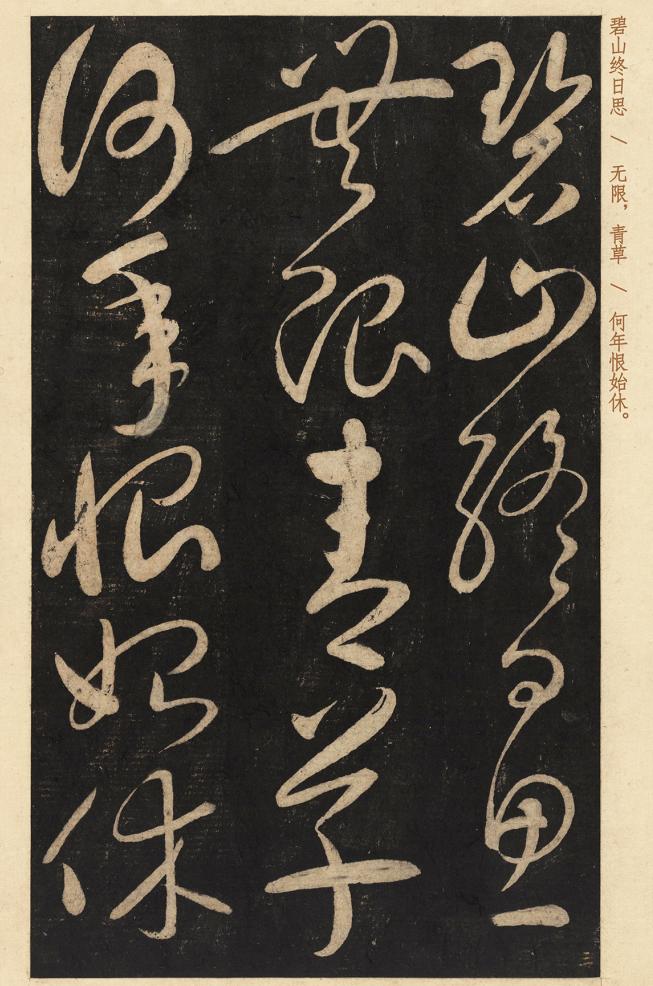 碧山终日思 \ 无限，青草 \ 何年恨始休。
碧山終日思
無限青草
何年恨始休
三